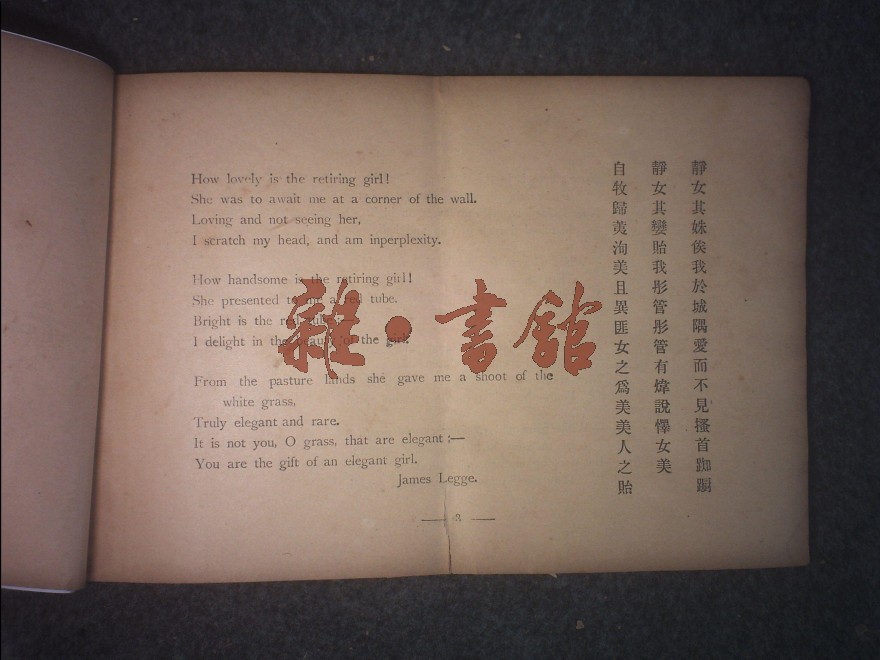 How lovely is the retiring girl!
She was to await me at a corner of the wall.
Loving and not seeing her,
I scratch my head, and am inperplexity.
How handsome is the retiring girl!
She presented to me a red tube.
Bright is the red tube;—
I delight in the beauty of the girl.
From the pasture lands she gave me a shoot of the
white grass,
Truly elegant and rare.
It is not you, O grass, that are elegant;—
You are the gift of an elegant girl.
James Legge.
— 3 —
靜女其姝俟我於城隅愛而不見搔首踟躕
靜女其孌貽我彤管彤管有煒說懌女美
自牧歸荑洵美且異匪女之爲美美人之貽
雜·書館